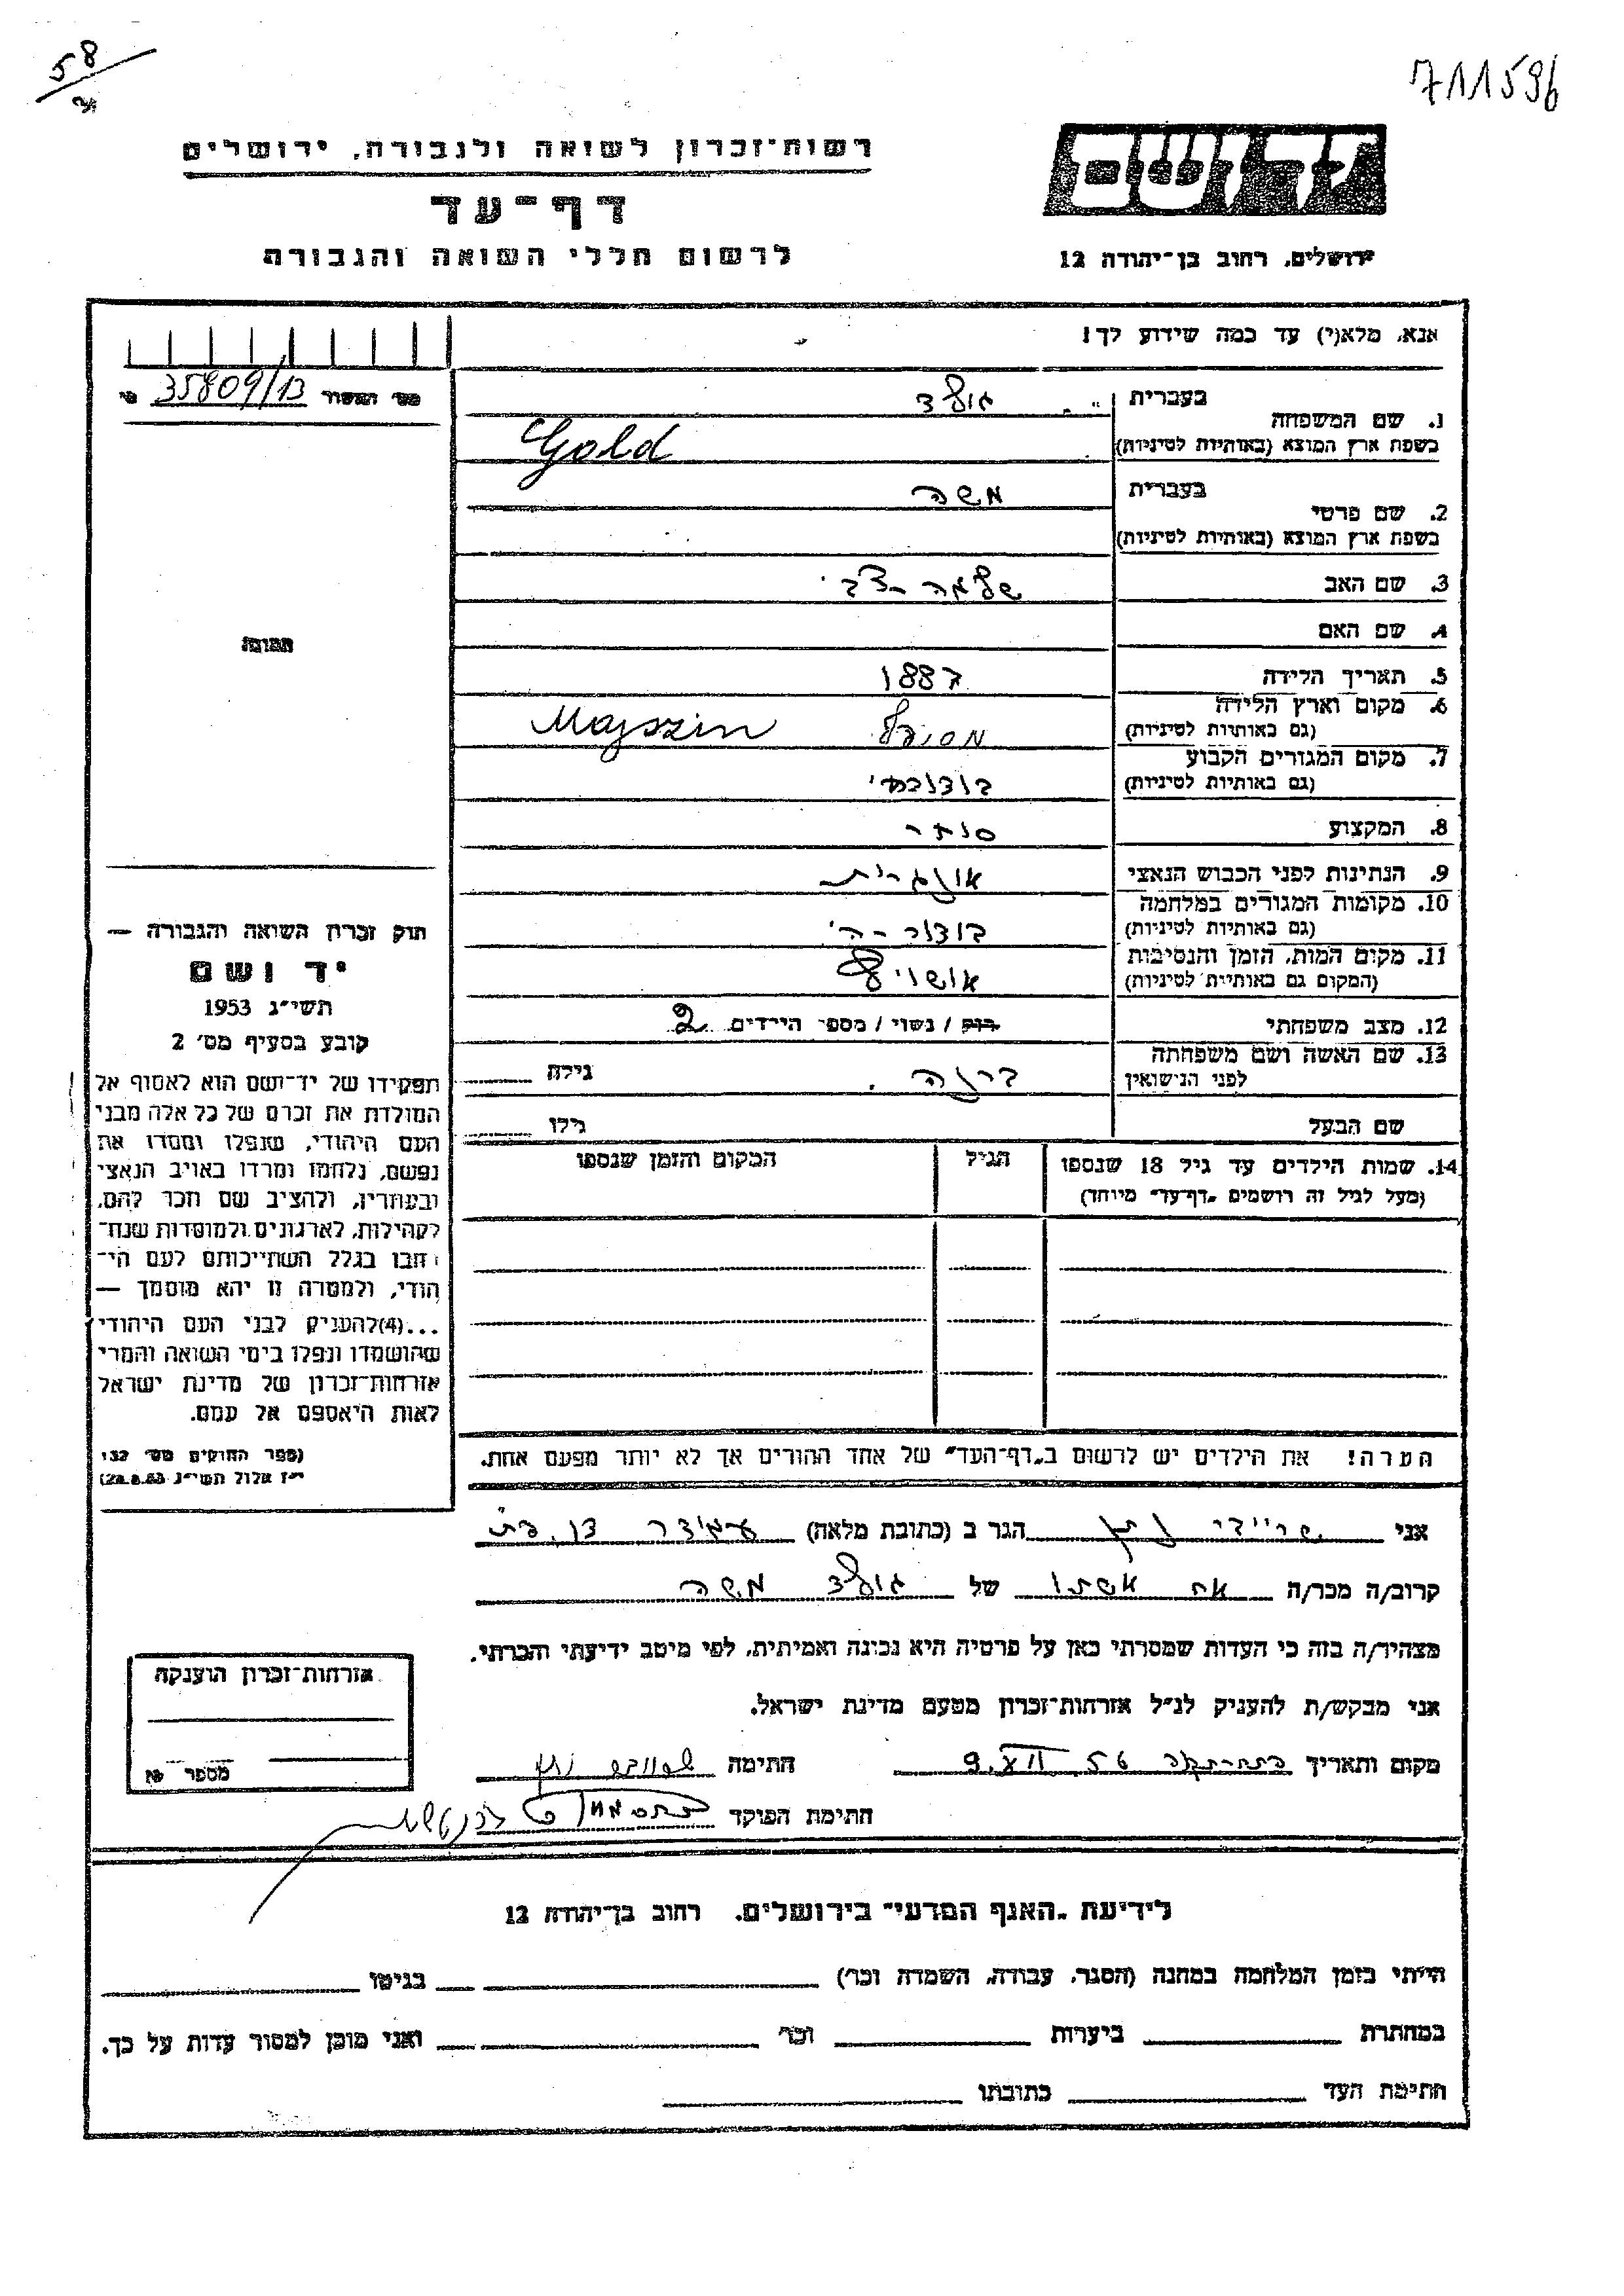 58
7115 96
רשות־זכרון לשואה ולגבורה, ירושלים
דף־עד
לרשום חללי השואה והגבורה
יד ושם
ירושלים, רחוב בן־יהודה 12
אנא, מלא(י) עד כמה שידוע לך!
35809/13
1. שם המשפחה
בעברית גולד
בשפת ארץ המוצא (באותיות לטיניות) Gold
2. שם פרטי
בעברית משה
בשפת ארץ המוצא (באותיות לטיניות)
3. שם האב שלמה - צבי
4. שם האם
5. תאריך הלידה 1887
6. מקום וארץ הלידה
(גם באותיות לטיניות) Majszin
7. מקום המגורים הקבוע
(גם באותיות לטיניות) בודפסט
8. המקצוע סוחר
9. הנתינות לפני הכבוש הנאצי אונגרית
10. מקומות המגורים במלחמה
(גם באותיות לטיניות)
11. מקום המות, הזמן והנסיבות
(המקום גם באותיות לטיניות) אושויץ
12. מצב משפחתי רוק / נשוי / מספר הילדים 2
13. שם האשה ושם משפחתה
לפני הנישואין גילה
שם הבעל גילו
14. שמות הילדים עד גיל 18 שנספו
(מעל לגיל זה רושמים "דף־עד" מיוחד)
הגיל
המקום והזמן שנספו
הערה! את הילדים יש לרשום ב"דף־העד" של אחד ההורים אך לא יותר מפעם אחת.
תמונה
חוק זכרון השואה והגבורה —
יד ושם
תשי״ג 1953
קובע בסעיף מס׳ 2
תפקידו של יד־ושם הוא לאסוף אל
המולדת את זכרם של כל אלה מבני
העם היהודי, שנפלו ומסרו את
נפשם, נלחמו ומרדו באויב הנאצי
ובעוזריו, ולהציב שם וזכר להם,
לקהילות, לארגונים ולמוסדות שנח־
רבו בגלל השתייכותם לעם הי־
הודי, ולמטרה זו יהא מוסמך —
...(4)להעניק לבני העם היהודי
שהושמדו ונפלו בימי השואה והמרי
אזרחות־זכרון של מדינת ישראל
לאות היאספם אל עמם.
(ספר החוקים מס׳ 132
י״ז אלול תשי״ג 28.8.53)
אני הגר ב (כתובת מלאה)
קרוב/ה מכר/ה אח אשתו של גולד משה
מצהיר/ה בזה כי העדות שמסרתי כאן על פרטיה היא נכונה ואמיתית, לפי מיטב ידיעתי והכרתי.
אני מבקש/ת להעניק לנ״ל אזרחות־זכרון מטעם מדינת ישראל.
מקום ותאריך 9. XII 56 חתימה
חתימת הפוקד
אזרחות־זכרון הוענקה
מספר
לידיעת "האגף המדעי" בירושלים, רחוב בן־יהודה 12
הייתי בזמן המלחמה במחנה (הסגר, עבודה, השמדה וכו׳) בגיטו
במחתרת ביערות וכו׳ ואני מוכן למסור עדות על כך.
חתימת העד כתובתו